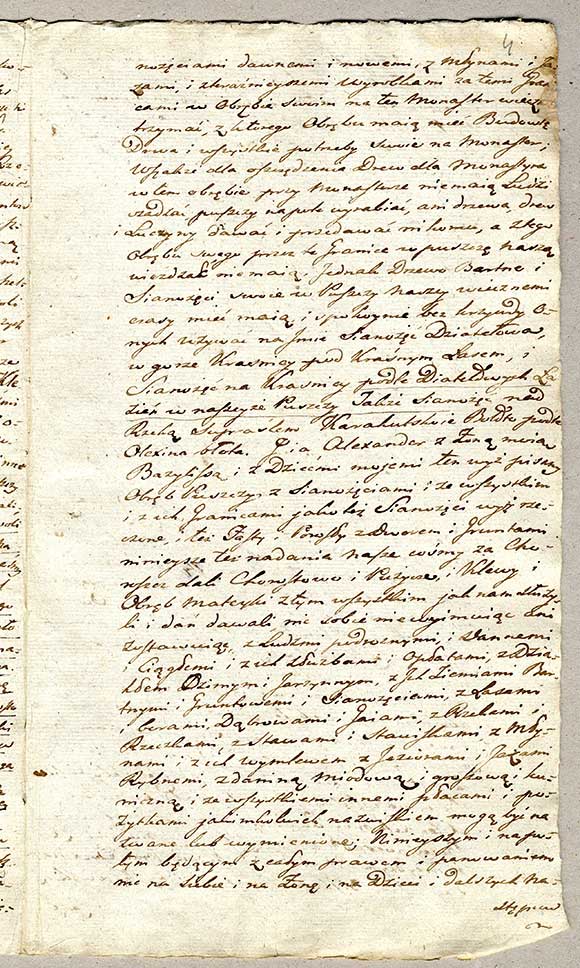 4
nożęciami dawnemi i nowemi, z Młynami i Ja-
zami, i zewnieyszemi wyrobkami za temi Gra-
cami w Obrębie swoim na ten Monaster wiecz
trzymać, z którego Obrębu maią mieć Budowlę
Drwa i wszystkie potrzeby swoie na Monaster;
Wszakże dla oszczędzenia Drew dla Monastyra
w tem obrębie przy Monasterze nie maią Ludzi
sadzać puszczy na pole wyrabiać, ani drzewa, drew
i Łuczyny dawać i przedawać nikomu, a z tego
Obrębu swego przez te Granice w puszczę naszą
wieżdżać nie maią. Jednak Drzewo Bartne i
Sianożęci swoie w Puszczy Naszy wiecznemi
czasy mieć maią i spokoynie bez krzywdy O-
nych używać na Imie Sianożęć Dziatełowa,
w gorze Krasnicy pod Kraśnym Lasem, i
Sianożęć na Krasnicy podle Diatełowych Ła
zień w naszeyże Puszczy Także Sianożęć nad
Rzeką Supraslem Karakulskoie Bołoto podle
Olexina błota. I ia Alexander z Żoną moią
Bazylissą i z Dziećmi mojemi ten wyż pisany
Obręb Puszczy z Sianożęciami i ze wszystkiem
i z ich Granicami jako też Sianożęci wyż rze-
czone, i też Topilec i Pouskły z Dworem i Gruntami
ninieysze też nadania nasze cośmy za Cho-
roszcz dali Chorostowo i Pużyce, i Klewy i
Obręb Mateyki z tym wszystkim jak nam służy-
li i dań dawali nic sobie nie wyimuiąc ani
zostawuiąc, z Ludzmi podrożnymi, i Dannemi
i Ciągłemi z ich służbami i Opłatami, z Dzia-
kłem Ozimym i Jarzynnym, z Ich Ziemiami Bar-
tnymi i Gruntowemi i Sianożęciami, z Lasami
i borami, Dąbrowami i Gaiami, z Rzekami i
Rzeczkami, z Stawami i Stawiskami z Mły-
nami i z ich wymlewem z Jeziorami i Jazami
Rybnemi, z daniną miodową, i groszową, i ku-
niczną i ze wszystkiemi innemi płacami i po-
żytkami jakimkolwiek nazwiskiem mogą być na
zwane lub wymienione; Ninieyszym i napo-
tym będącym z całym prawem i panowaniem
nic na siebie i na Żonę i na Dzieci i dalszych Na-
stępców